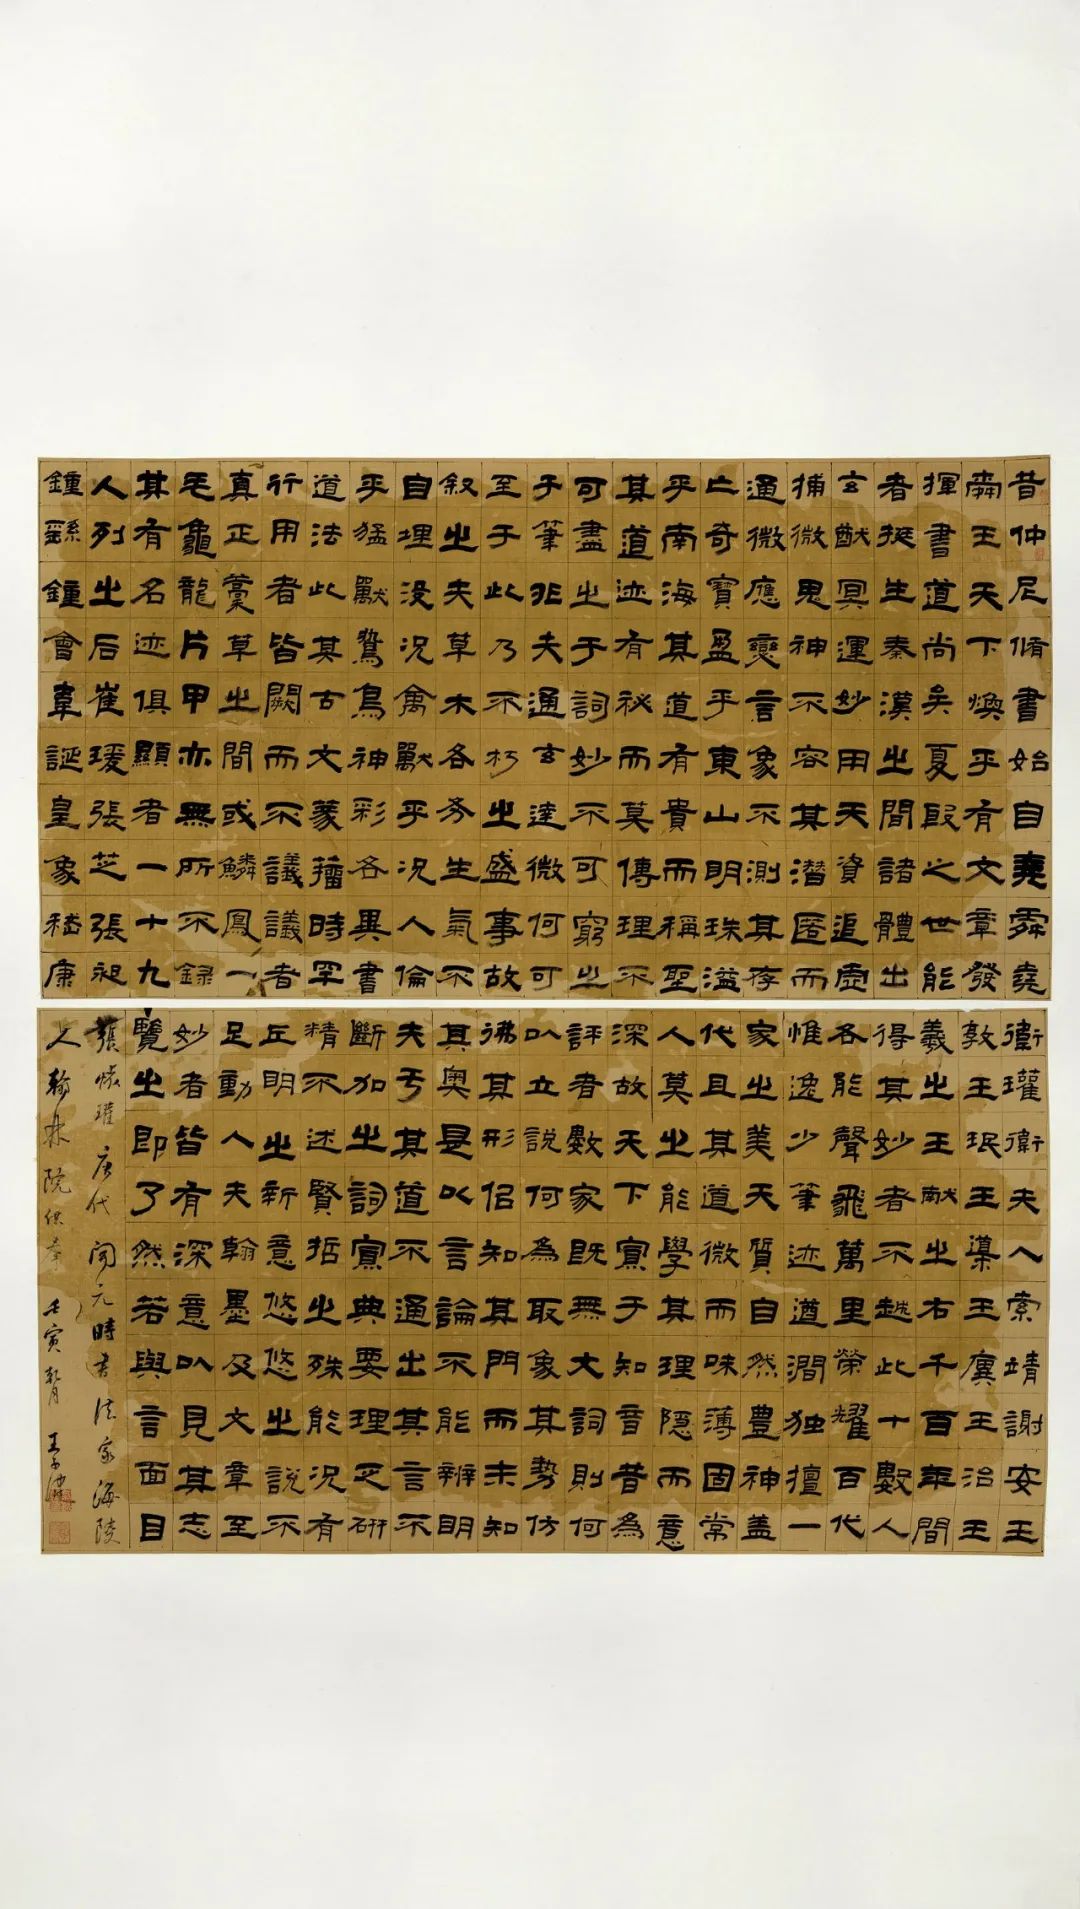 昔仲尼脩書始自堯舜堯
舜王天下煥乎有文章發
揮書道尚矣夏殷之世能
者挺生秦漢之間諸體出
玄猷冥運妙用天資追虛
捕微鬼神不容其潛匿而
通微應變言象不測其存
亡奇寶盈乎東山明珠溢
乎南海其道有貴而稱聖
其道迹有祕而莫傳理不
可盡之于詞妙不可窮之
于筆非夫通玄達微何可
至于此乃不朽之盛事故
叙之夫草木各務生氣不
自埋没況禽獸乎況人倫
乎猛獸鷙鳥神彩各異書
道法此其古文篆籀時罕
行用者皆闕而不議議者
真正藁草之間或鱗鳳一
毛龜龍片甲亦無所不録
其有名迹俱顯者一十九
人列之后崔瑗張芝張昶
鍾繇鍾會韋誕皇象嵇康
衛瓘衛夫人索靖謝安王
敦王珉王濛王廙王洽王
羲之王献之右千百年間
得其妙者不越此十數人
各能聲飛萬里榮耀百代
惟逸少筆迹遒潤独擅一
家之美天質自然豊神盖
代且其道微而味薄固常
人莫之能學其理隱而意
深故天下寡于知音昔為
評者數家既無大詞則何
以立説何為取象其势仿
彿其形侣知其門而未知
其奥是以言論不能辨明
夫于其道不通出其言不
断加之詞寡典要理乏研
精不述賢哲之殊能況有
丘明之新意悠悠之説不
足動人夫翰墨及文章至
妙者皆有深意以見其志
覽之即了然若與言面目
張懷瓘唐代開元時書法家海陵
人翰林院供奉 壬寅 月 王